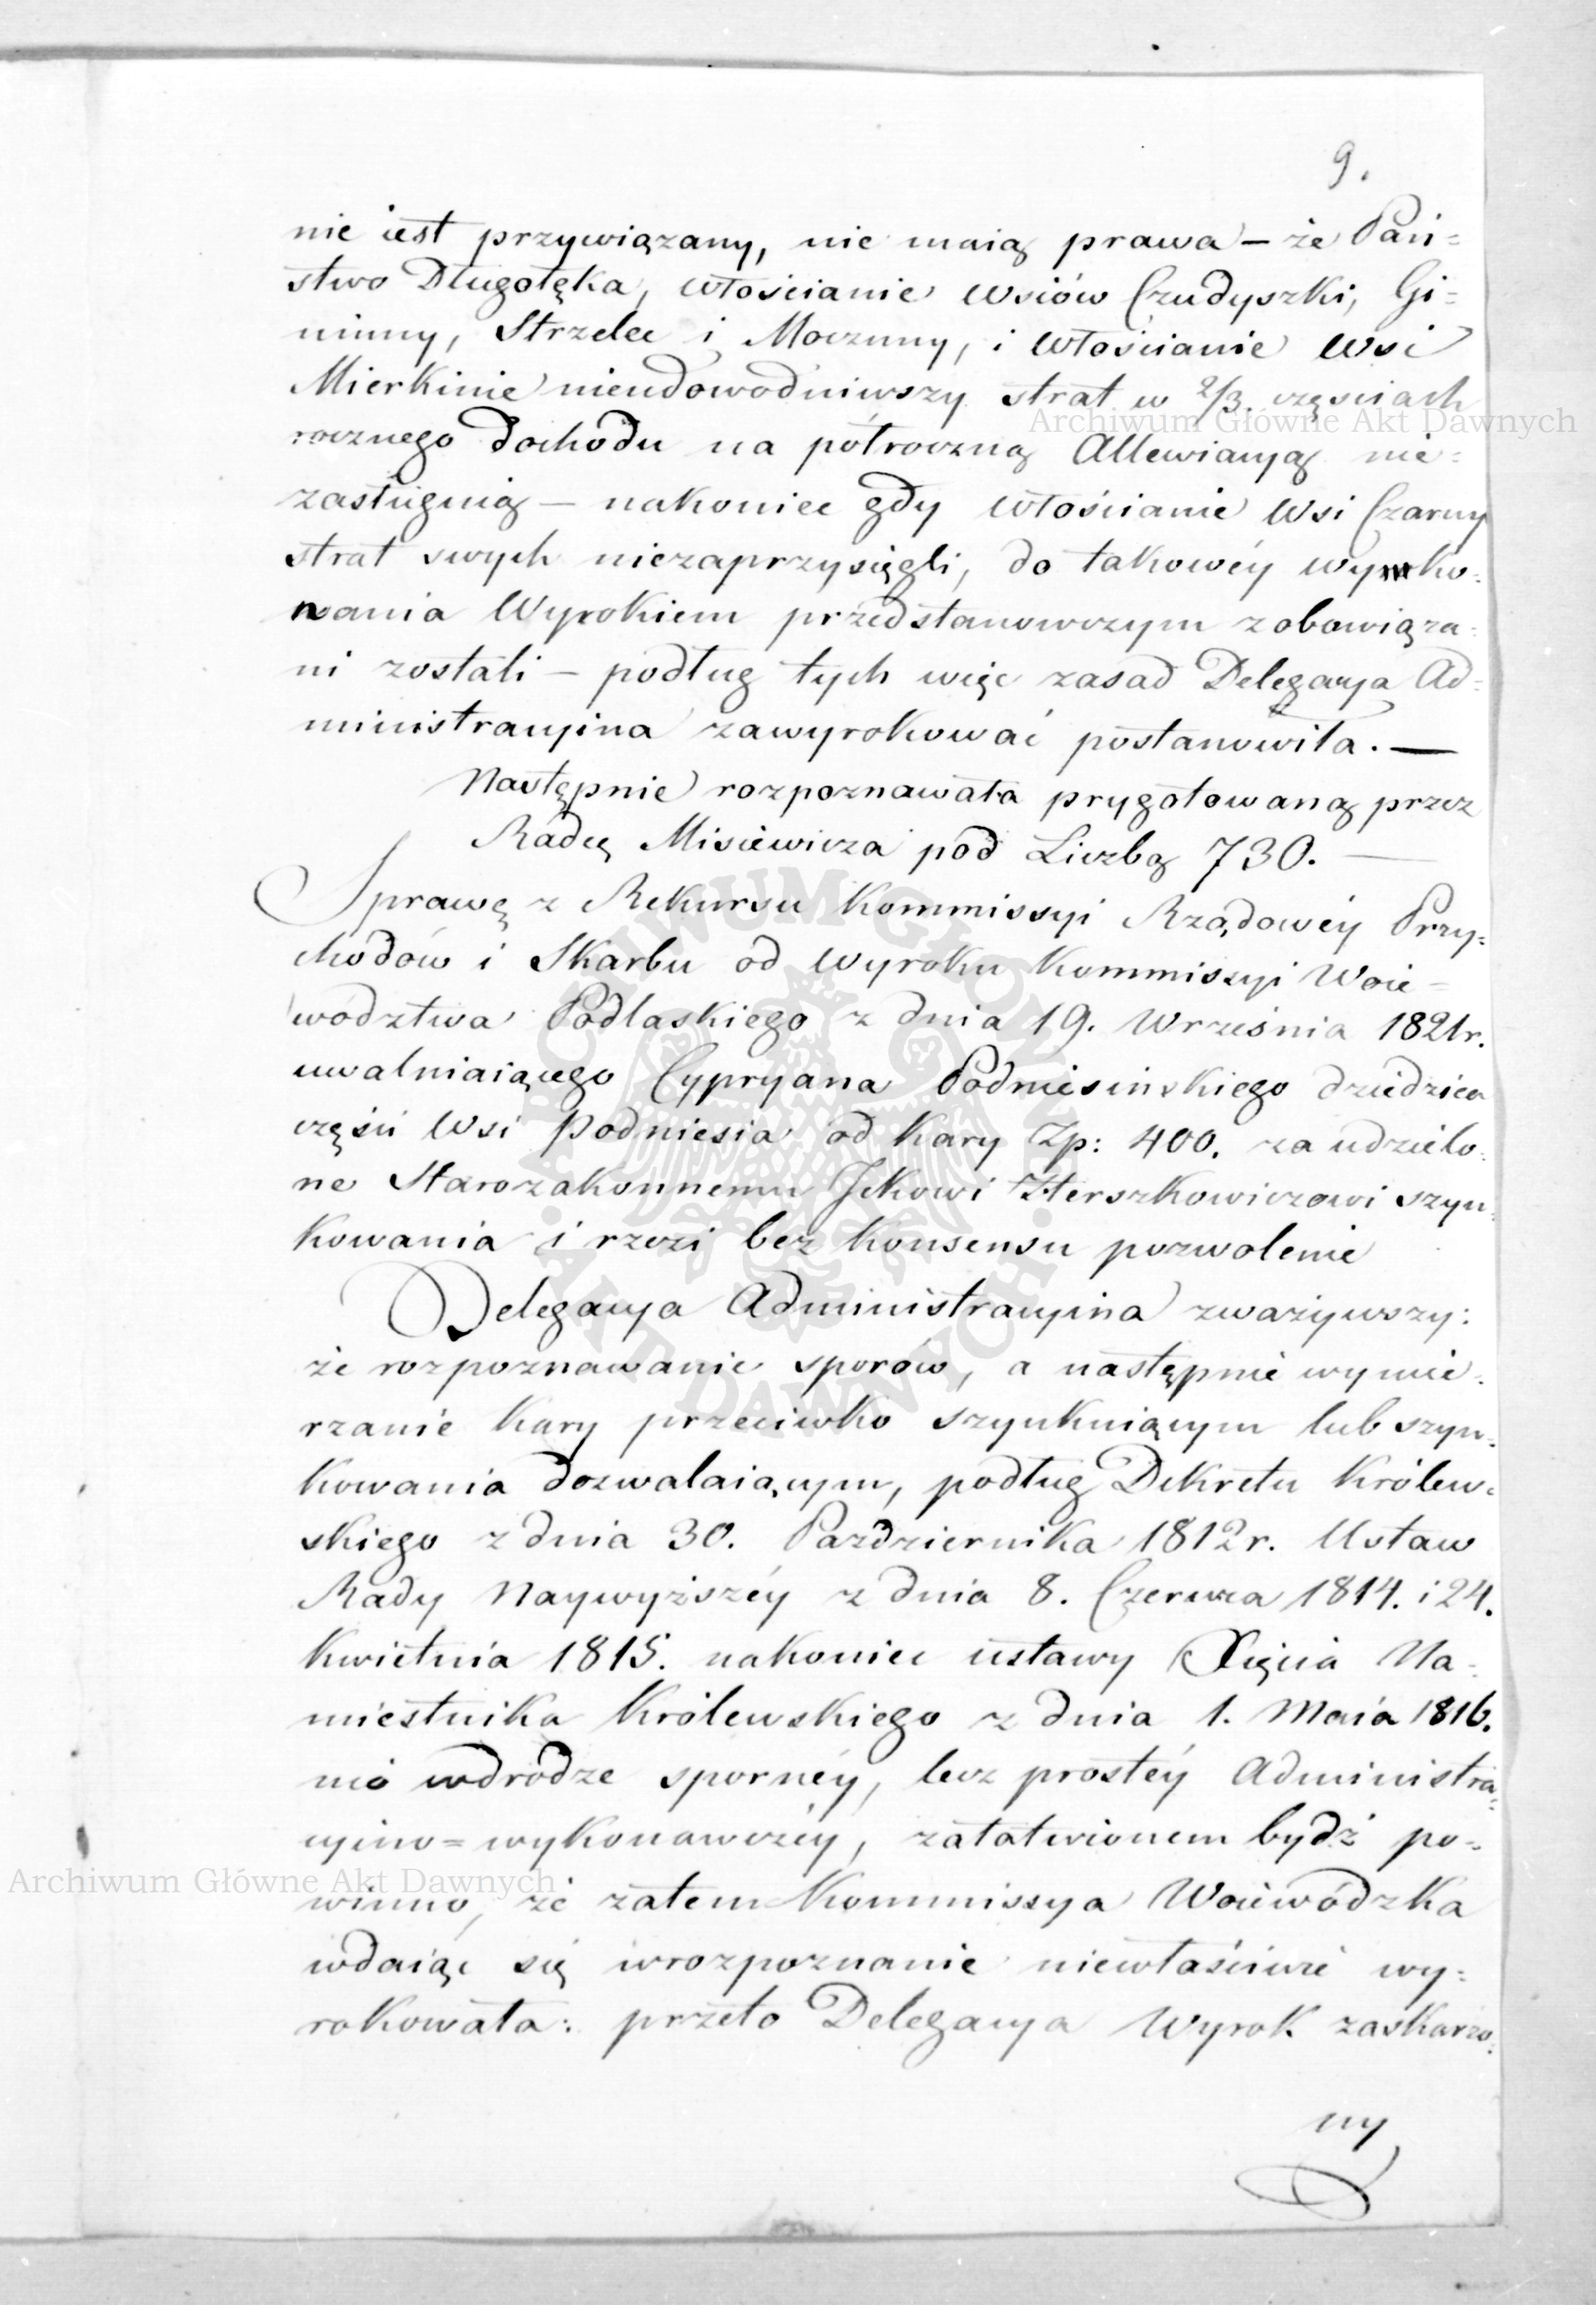 9.
nie iest przywiązany, nie maią prawa – że Pań=
stwo Długołęka, włościanie wsiów Czudyszki, Gi=
ninny, Strzelec i Mocznny, i włościanie wsi
Mierkinie nieudowodniwszy strat w 2/3. częściach
rocznego dochodu na półroczną Allewiacyą nie=
zasługuią – nakoniec gdy włościanie wsi Czarny
strat swych niezaprzysięgli, do takowéy wyko=
nania Wyrokiem przedstanowczym zobowiąza=
ni zostali – podług tych więc zasad Delegacya Ad=
ministracyina zawyrokować postanowiła. —
Następnie rozpoznawała prygotowaną przez
Radcę Misiewicza pod Liczbą 730. —
Sprawę z Rekursu Kommissyi Rządowéy Przy=
chodów i Skarbu od Wyroku Kommissyi Woie=
wództwa Podlaskiego z dnia 19. Września 1821r.
uwalniaiącego Cypryana Podniesińskiego dziedzica
części wsi Podniesia od Kary Zp: 400. za udzielo=
ne Starozakonnemu Jckowi Herszkowiczowi szyn=
kowania i rzezi bez Konsensu pozwolenie
Delegacya Administracyina zważywszy:
że rozpoznawanie sporów, a następnie wymie=
rzanie Kary przeciwko szynkuiącym lub szyn=
kowania dozwalaiącym, podług Dekretu Królew=
skiego z dnia 30. Pazdziernika 1812r. Ustaw
Rady Naywyższéy z dnia 8. Czerwca 1814. i 24.
Kwietnia 1815. nakoniec ustawy Xięcia Na=
miestnika Królewskiego z dnia 1. Maia 1816.
nie wdrodze spornéy, lecz prostéy Administra=
cyino=wykonawczéy, załatwionem bydź po=
winno, że zatem Kommissya Woiewódzka
wdaiąc się wrozpoznanie niewłaściwie wy=
rokowała: przeto Delegacya Wyrok zaskarżo=
ny
Archiwum Główne Akt Dawnych
Archiwum Główne Akt Dawnych
ARCHIWUM GŁÓWNE · AKT DAWNYCH ·